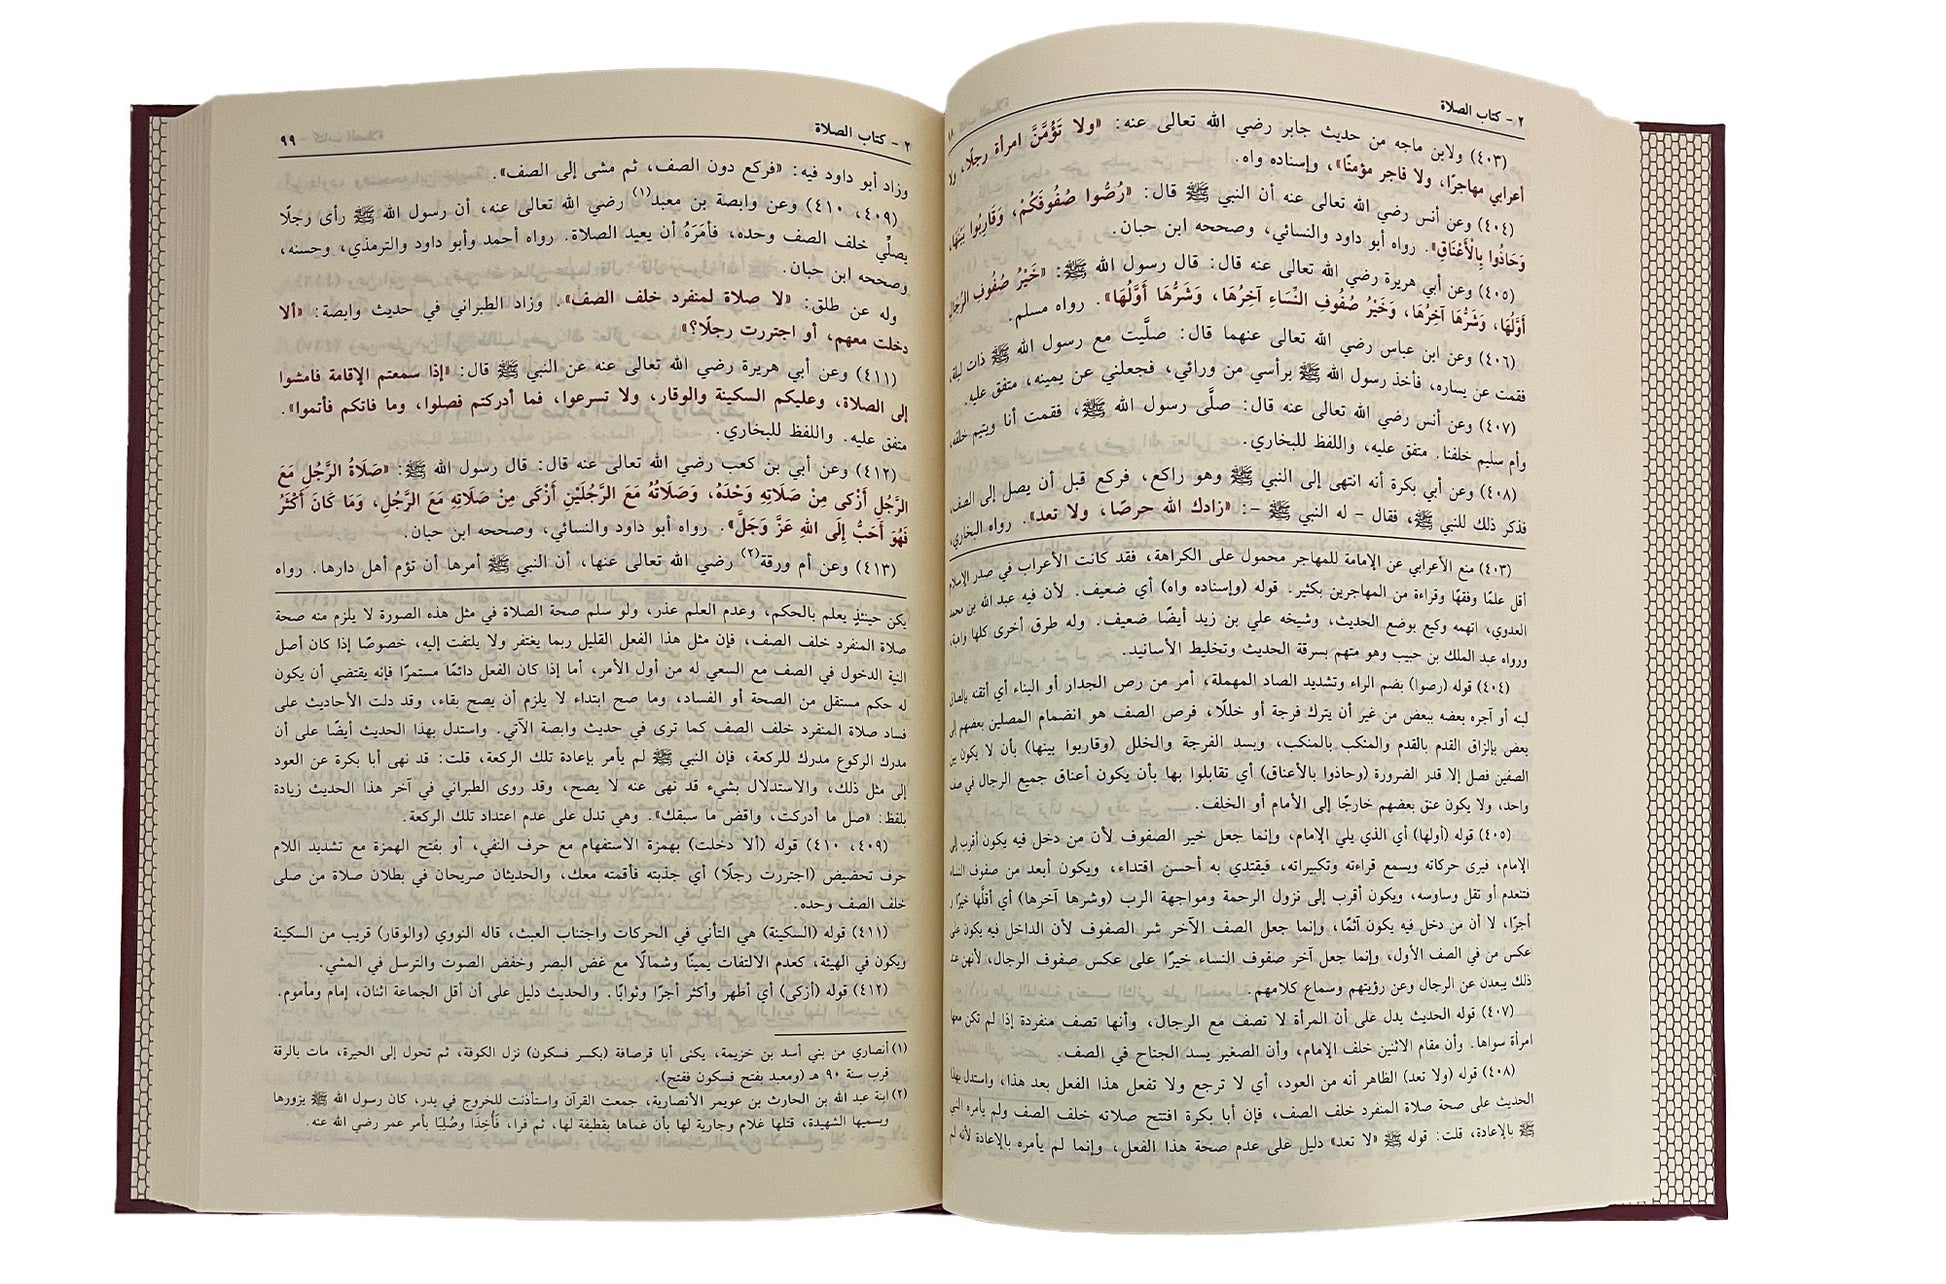 ٢ - كتاب الصلاة
(٤٠٣) ولابن ماجه من حديث جابر رضي الله تعالى عنه: «ولا تَؤُمَّنَّ امرأة رجلًا، ولا
أعرابي مهاجرًا، ولا فاجر مؤمنًا»، وإسناده واه.
(٤٠٤) وعن أنس رضي الله تعالى عنه أن النبي ﷺ قال: «رُصُّوا صُفُوفَكُمْ، وَقَارِبُوا بَيْنَهَا،
وَحَاذُوا بِالْأَعْنَاقِ». رواه أبو داود والنسائي، وصححه ابن حبان.
(٤٠٥) وعن أبي هريرة رضي الله تعالى عنه قال: قال رسول الله ﷺ: «خَيْرُ صُفُوفِ الرِّجَالِ
أَوَّلُهَا، وَشَرُّهَا آخِرُهَا، وَخَيْرُ صُفُوفِ النِّسَاءِ آخِرُهَا، وَشَرُّهَا أَوَّلُهَا». رواه مسلم.
(٤٠٦) وعن ابن عباس رضي الله تعالى عنهما قال: صلَّيت مع رسول الله ﷺ ذات ليلة،
فقمت عن يساره، فأخذ رسول الله ﷺ برأسي من ورائي، فجعلني عن يمينه، متفق عليه.
(٤٠٧) وعن أنس رضي الله تعالى عنه قال: صلَّى رسول الله ﷺ، فقمت أنا ويتيم خلفه،
وأم سليم خلفنا. متفق عليه، واللفظ للبخاري.
(٤٠٨) وعن أبي بكرة أنه انتهى إلى النبي ﷺ وهو راكع، فركع قبل أن يصل إلى الصف،
فذكر ذلك للنبي ﷺ، فقال - له النبي ﷺ -: «زادك الله حرصًا، ولا تعد». رواه البخاري،
(٤٠٣) منع الأعرابي عن الإمامة للمهاجر محمول على الكراهة، فقد كانت الأعراب في صدر الإسلام
أقل علمًا وفقهًا وقراءة من المهاجرين بكثير. قوله (وإسناده واه) أي ضعيف. لأن فيه عبد الله بن محمد
العدوي، اتهمه وكيع بوضع الحديث، وشيخه علي بن زيد أيضًا ضعيف. وله طرق أخرى كلها واهية،
ورواه عبد الملك بن حبيب وهو متهم بسرقة الحديث وتخليط الأسانيد.
(٤٠٤) قوله (رصوا) بضم الراء وتشديد الصاد المهملة، أمر من رص الجدار أو البناء أي أتقنه بإلصاق
لبنه أو آجره بعضه ببعض من غير أن يترك فرجة أو خللًا، فرص الصف هو انضمام المصلين بعضهم إلى
بعض بإلزاق القدم بالقدم والمنكب بالمنكب، وبسد الفرجة والخلل (وقاربوا بينها) بأن لا يكون بين
الصفين فصل إلا قدر الضرورة (وحاذوا بالأعناق) أي تقابلوا بها بأن يكون أعناق جميع الرجال في صف
واحد، ولا يكون عنق بعضهم خارجًا إلى الأمام أو الخلف.
(٤٠٥) قوله (أولها) أي الذي يلي الإمام، وإنما جعل خير الصفوف لأن من دخل فيه يكون أقرب إلى
الإمام، فيرى حركاته ويسمع قراءته وتكبيراته، فيقتدي به أحسن اقتداء، ويكون أبعد من صفوف النساء
فتنعدم أو تقل وساوسه، ويكون أقرب إلى نزول الرحمة ومواجهة الرب (وشرها آخرها) أي أقلها خيرًا و
أجرًا، لا أن من دخل فيه يكون آثمًا، وإنما جعل الصف الآخر شر الصفوف لأن الداخل فيه يكون على
عكس من في الصف الأول، وإنما جعل آخر صفوف النساء خيرًا على عكس صفوف الرجال، لأنهن عند
ذلك يبعدن عن الرجال وعن رؤيتهم وسماع كلامهم.
(٤٠٧) قوله الحديث يدل على أن المرأة لا تصف مع الرجال، وأنها تصف منفردة إذا لم تكن معها
امرأة سواها. وأن مقام الاثنين خلف الإمام، وأن الصغير يسد الجناح في الصف.
(٤٠٨) قوله (ولا تعد) الظاهر أنه من العود، أي لا ترجع ولا تفعل هذا الفعل بعد هذا، واستدل بهذا
الحديث على صحة صلاة المنفرد خلف الصف، فإن أبا بكرة افتتح صلاته خلف الصف ولم يأمره النبي
ﷺ بالإعادة، قلت: قوله ﷺ «لا تعد» دليل على عدم صحة هذا الفعل، وإنما لم يأمره بالإعادة لأنه لم
٢ - كتاب الصلاة ٩٩
وزاد أبو داود فيه: «فركع دون الصف، ثم مشى إلى الصف».
(٤٠٩، ٤١٠) وعن وابصة بن معبد(١) رضي الله تعالى عنه، أن رسول الله ﷺ رأى رجلًا
يصلِّي خلف الصف وحده، فأمَرَهُ أن يعيد الصلاة. رواه أحمد وأبو داود والترمذي، وحسنه،
وصححه ابن حبان.
وله عن طلق: «لا صلاة لمنفرد خلف الصف». وزاد الطبراني في حديث وابصة: «ألا
دخلت معهم، أو اجتررت رجلًا؟»
(٤١١) وعن أبي هريرة رضي الله تعالى عنه عن النبي ﷺ قال: «إذا سمعتم الإقامة فامشوا
إلى الصلاة، وعليكم السكينة والوقار، ولا تسرعوا، فما أدركتم فصلوا، وما فاتكم فأتموا».
متفق عليه. واللفظ للبخاري.
(٤١٢) وعن أبي بن كعب رضي الله تعالى عنه قال: قال رسول الله ﷺ: «صَلَاةُ الرَّجُلِ مَعَ
الرَّجُلِ أَزْكى مِنْ صَلَاتِهِ وَحْدَهُ، وَصَلَاتُهُ مَعَ الرَّجُلَيْنِ أَزْكَى مِنْ صَلَاتِهِ مَعَ الرَّجُلِ، وَمَا كَانَ أَكْثَرُ
فَهُوَ أَحَبُّ إِلَى اللهِ عَزَّ وَجَلَّ». رواه أبو داود والنسائي، وصححه ابن حبان.
(٤١٣) وعن أم ورقة(٢) رضي الله تعالى عنها، أن النبي ﷺ أمرها أن تؤم أهل دارها. رواه
يكن حينئذٍ يعلم بالحكم، وعدم العلم عذر، ولو سلم صحة الصلاة في مثل هذه الصورة لا يلزم منه صحة
صلاة المنفرد خلف الصف، فإن مثل هذا الفعل القليل ربما يغتفر ولا يلتفت إليه، خصوصًا إذا كان أصل
النية الدخول في الصف مع السعي له من أول الأمر، أما إذا كان الفعل دائمًا مستمرًا فإنه يقتضي أن يكون
له حكم مستقل من الصحة أو الفساد، وما صح ابتداء لا يلزم أن يصح بقاء، وقد دلت الأحاديث على
فساد صلاة المنفرد خلف الصف كما ترى في حديث وابصة الآتي. واستدل بهذا الحديث أيضًا على أن
مدرك الركوع مدرك للركعة، فإن النبي ﷺ لم يأمر بإعادة تلك الركعة، قلت: قد نهى أبا بكرة عن العود
إلى مثل ذلك، والاستدلال بشيء قد نهى عنه لا يصح، وقد روى الطبراني في آخر هذا الحديث زيادة
بلفظ: «صل ما أدركت، واقض ما سبقك». وهي تدل على عدم اعتداد تلك الركعة.
(٤٠٩، ٤١٠) قوله (ألا دخلت) بهمزة الاستفهام مع حرف النفي، أو بفتح الهمزة مع تشديد اللام
حرف تحضيض (اجتررت رجلًا) أي جذبته فأقمته معك، والحديثان صريحان في بطلان صلاة من صلى
خلف الصف وحده.
(٤١١) قوله (السكينة) هي التأني في الحركات واجتناب العبث، قاله النووي (والوقار) قريب من السكينة
ويكون في الهيئة، كعدم الالتفات يمينًا وشمالًا مع غض البصر وخفض الصوت والترسل في المشي.
(٤١٢) قوله (أزكى) أي أطهر وأكثر أجرًا وثوابًا. والحديث دليل على أن أقل الجماعة اثنان، إمام ومأموم.
(١) أنصاري من بني أسد بن خزيمة، يكنى أبا قرصافة (بكسر فسكون) نزل الكوفة، ثم تحول إلى الحيرة، مات بالرقة
قرب سنة ٩٠ هـ (ومعبد بفتح فسكون ففتح).
(٢) ابنة عبد الله بن الحارث بن عويمر الأنصارية، جمعت القرآن واستأذنت للخروج في بدر، كان رسول الله ﷺ يزورها
ويسميها الشهيدة، قتلها غلام وجارية لها بأن غماها بقطيفة لها، ثم فرا، فأُخِذَا وصُلِبَا بأمر عمر رضي الله عنه.